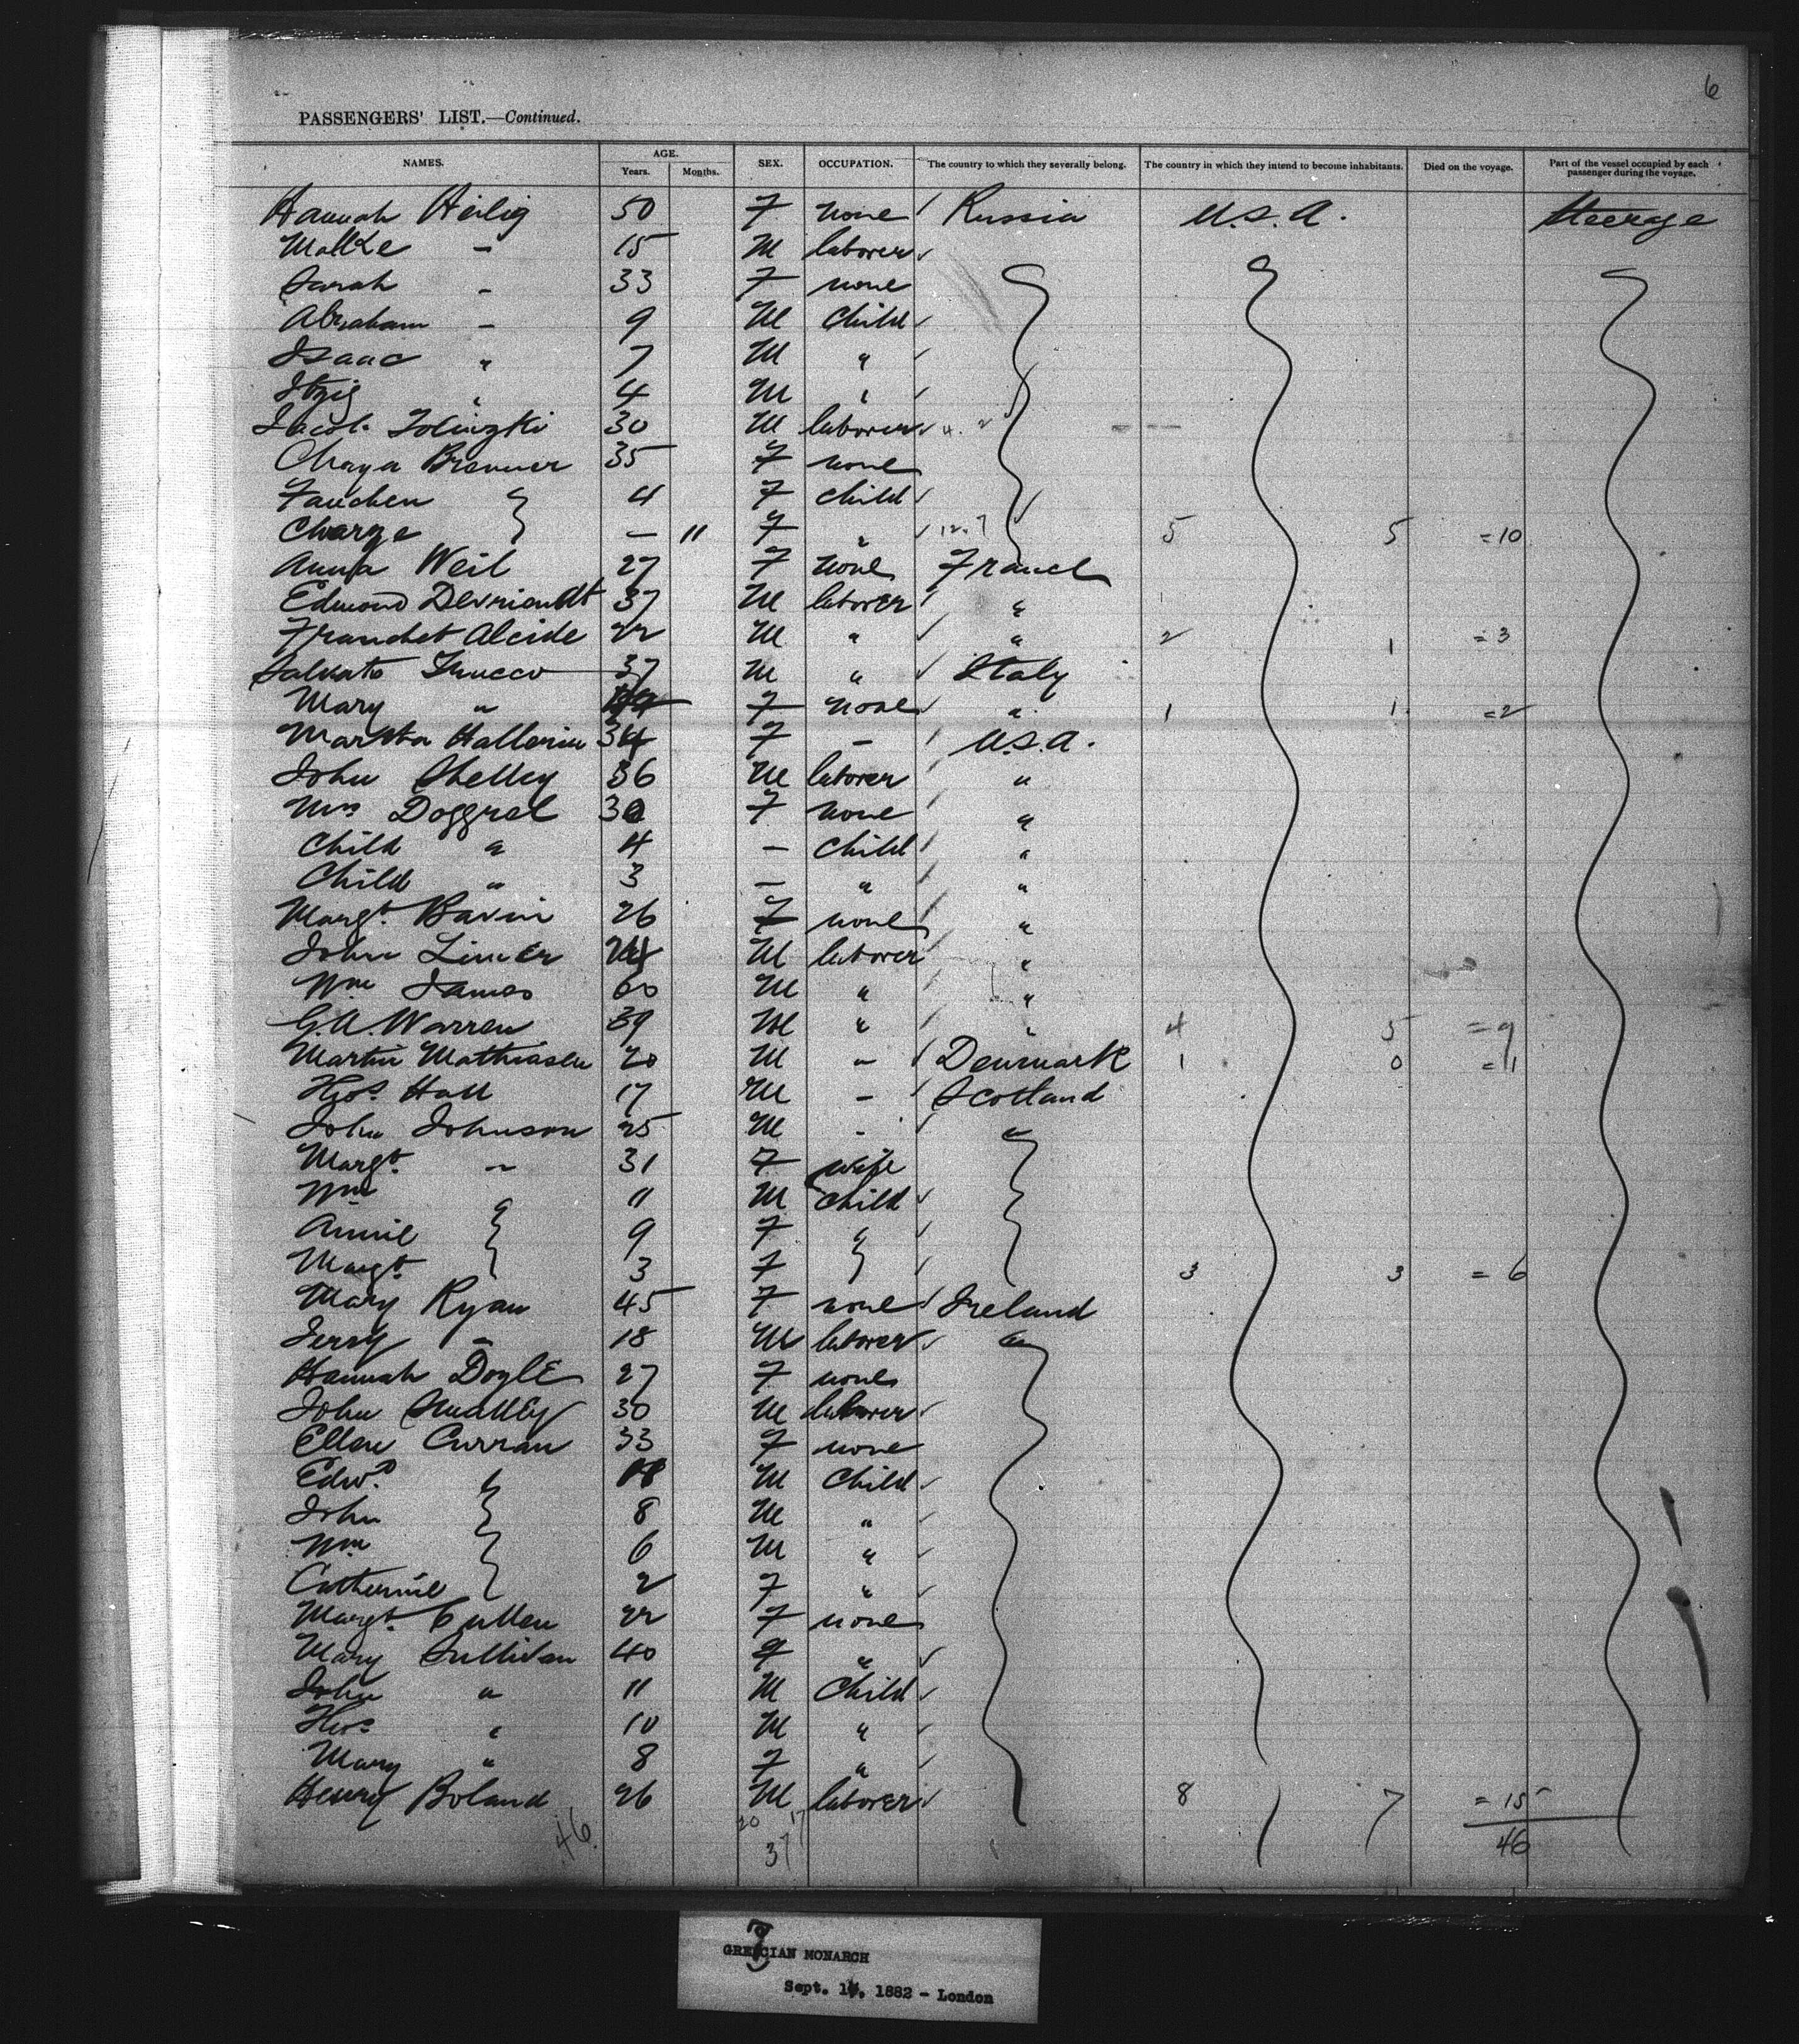 6
PASSENGERS' LIST.—Continued.
NAMES. AGE. Years. Months. SEX. OCCUPATION. The country to which they severally belong. The country in which they intend to become inhabitants. Died on the voyage. Part of the vessel occupied by each passenger during the voyage.
Hannah Heilig 50 F none Russia U.S.A. Steerage
Malke - 15 M laborer
Sarah - 33 F none
Abraham - 9 M Child
Isaac " 7 M "
Itzig " 4 M "
Jacob 30 M laborer
Chaya Brenner 35 F none
Fanchen 4 F child
- 11 F " 12. 7 5 5 =10
Anna Weil 27 F none France
Edmond Devriendt 37 M laborer "
Franchet Alcide 22 M " " 2 1 = 3
Salvato 37 M " Italy
Mary " F none " 1 1 =2
Martha Hallorin 34 F - U.S.A.
John Shelley 36 M laborer "
Mrs Doggrel 30 F none "
Child " 4 - Child "
Child " 3 - " "
Margt. Bavin 26 F none "
John Limer 24 M laborer "
Wm James 60 M " "
G.A. Warren 39 M " " 4 5 = 9
Martin Mathiasen 20 M - Denmark 1 0 = 1
Thos. Hall 17 M - Scotland
John Johnson 25 M - "
Margt. - 31 F wife
Wm " 11 M Child
Annie 9 F "
Margt. 3 F 3 3 = 6
Mary Ryan 45 F none Ireland
Jerry - 18 M laborer "
Hannah Doyle 27 F none
John 30 M laborer
Ellen Curran 33 F none
Edwd. " M Child
John 8 M "
Wm 6 M "
Catherine 2 F "
Margt. Cullen 22 F none
Mary Sullivan 40 F "
John " 11 M Child
Thos " 10 M "
Mary " 8 F "
Henry Boland 26 M laborer 8 7 = 15
46. 20 17 46
37
3
GRECIAN MONARCH
Sept. 14, 1882 - London